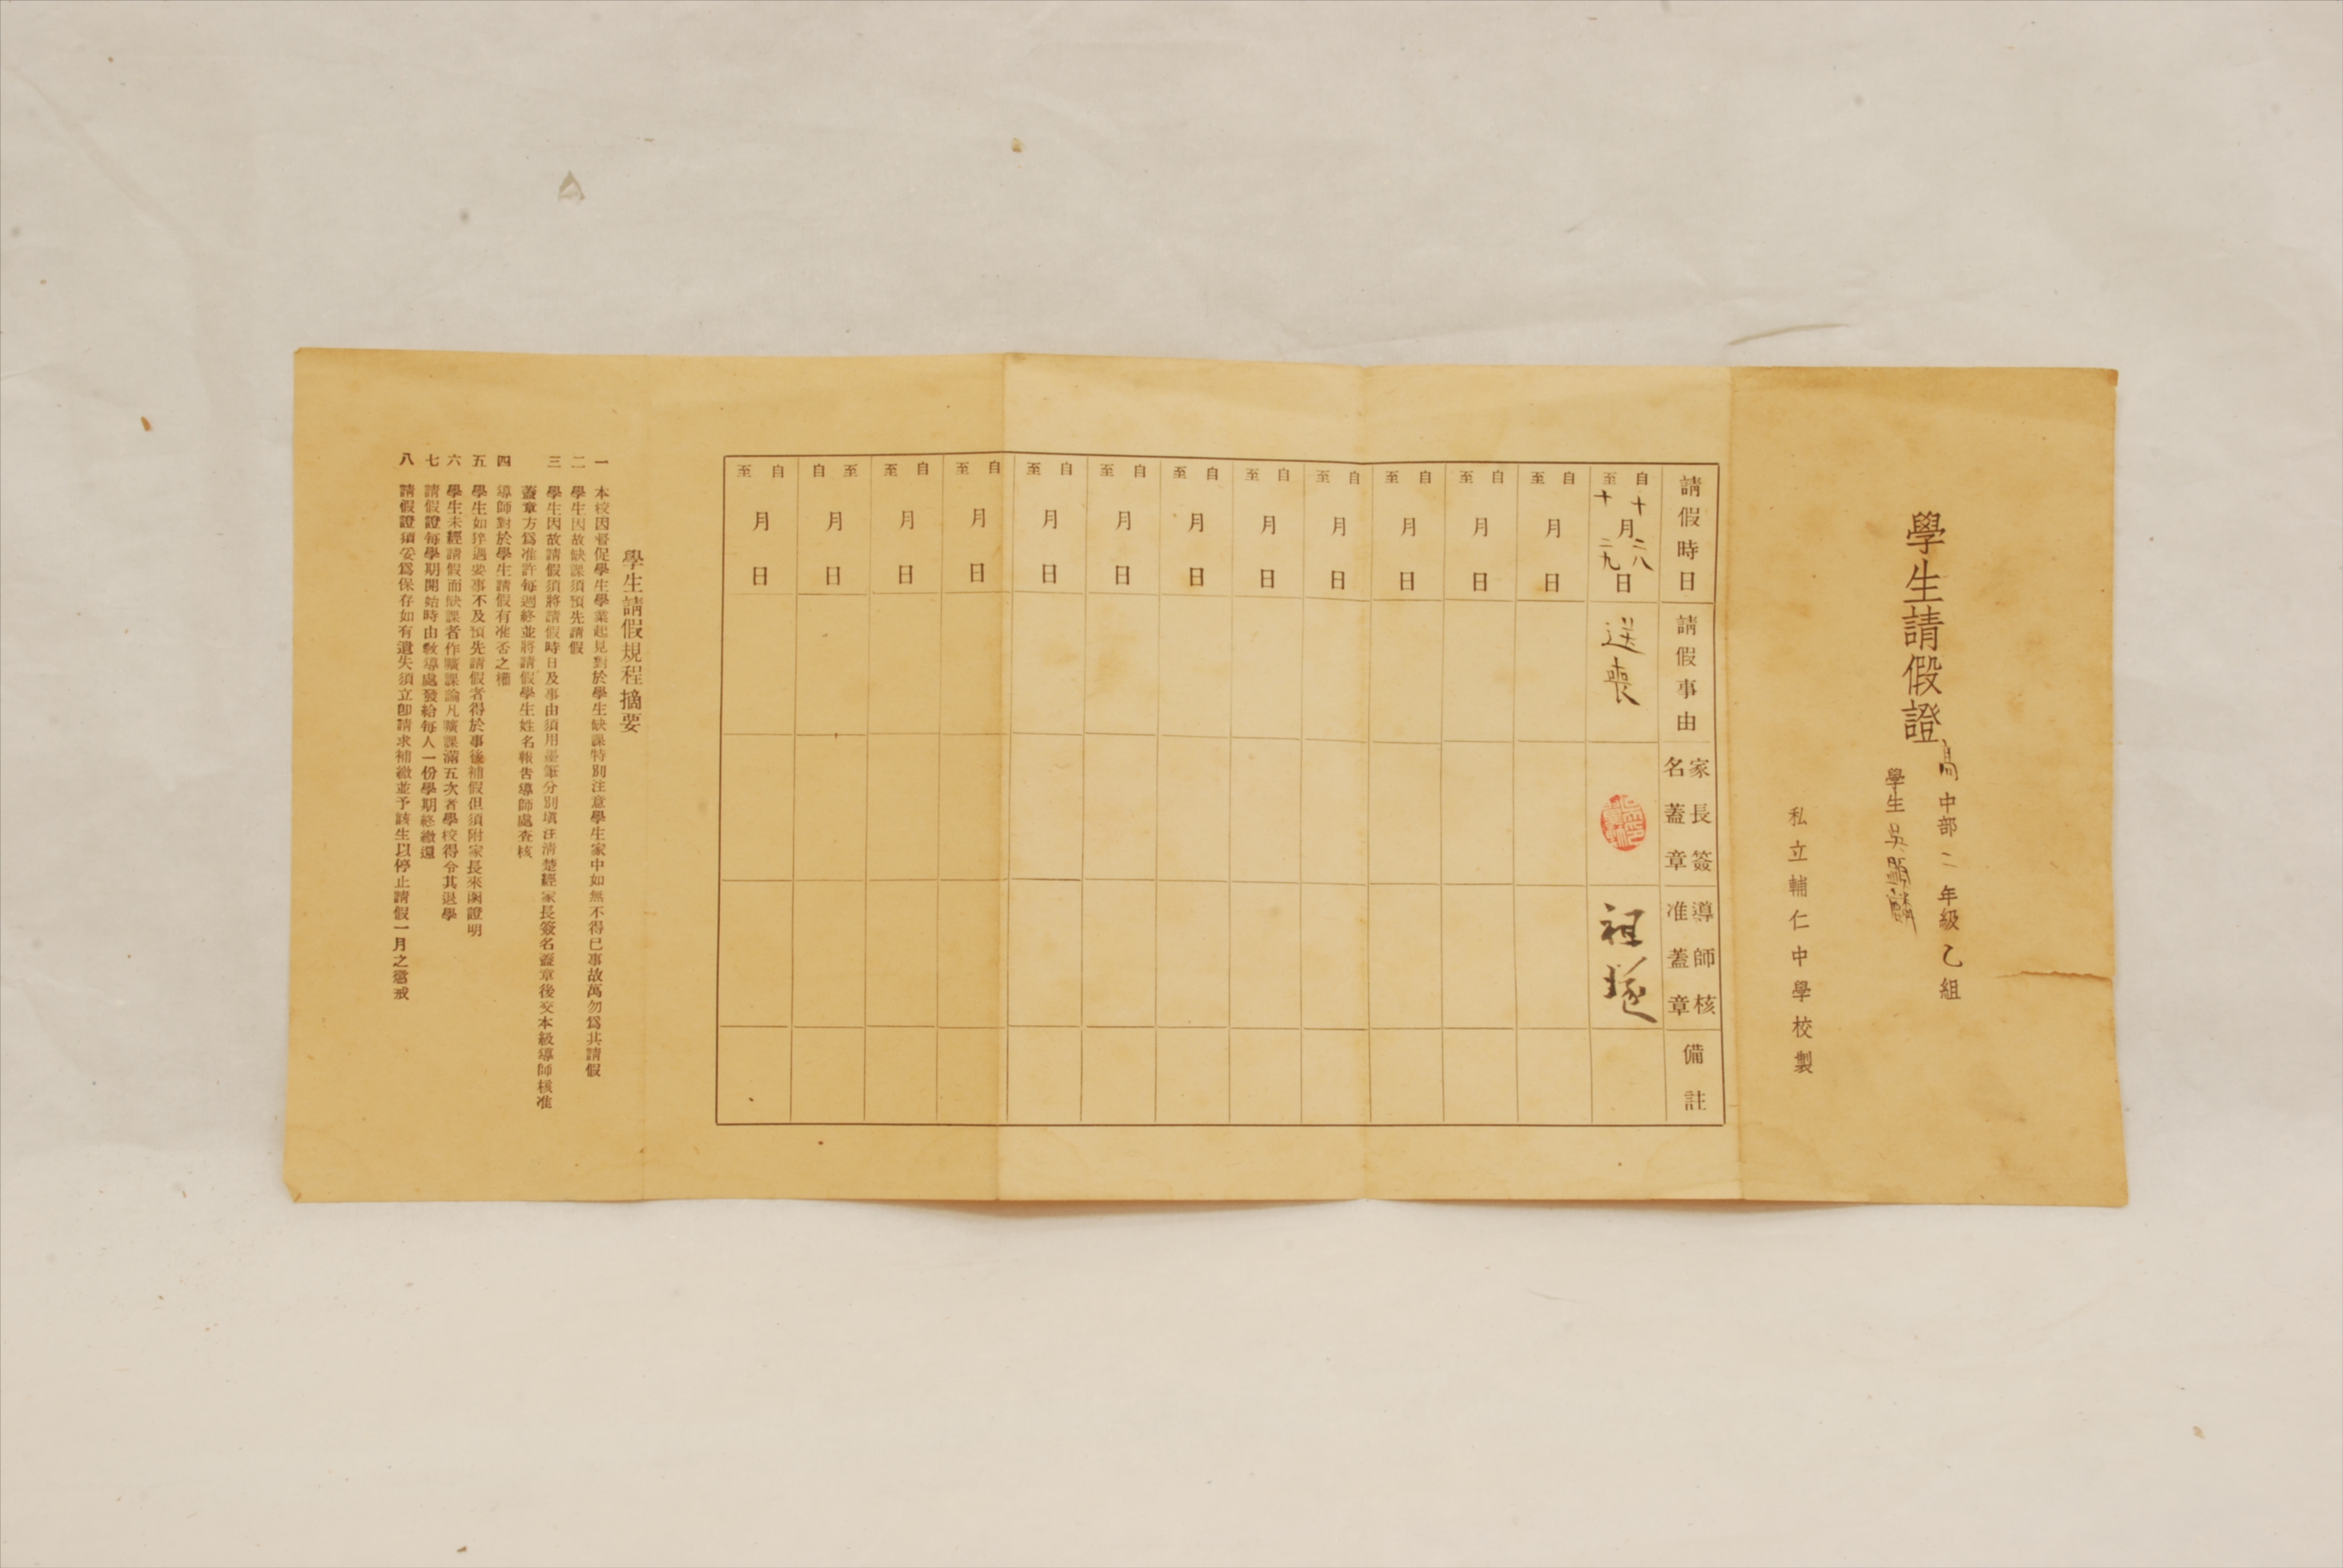 學生請假證
高中部二年級乙組
學生 吳
私立輔仁中學校製
請假時日
請假事由
家長簽名蓋章
導師核准蓋章
備註
自十月二八日
至十月二九日
送喪
祖
自 至 月 日
自 至 月 日
自 至 月 日
自 至 月 日
自 至 月 日
自 至 月 日
自 至 月 日
自 至 月 日
自 至 月 日
自 至 月 日
自 至 月 日
至 自 月 日
學生請假規程摘要
一 本校因督促學生學業起見對於學生缺課特別注意學生家中如無不得已事故萬勿爲其請假
二 學生因故缺課須預先請假
三 學生因故請假須將請假時日及事由須用墨筆分別塡注淸楚經家長簽名蓋章後交本級導師核准
蓋章方爲准許每週終並將請假學生姓名報吿導師處查核
四 導師對於學生請假有准否之權
五 學生如猝遇要事不及預先請假者得於事後補假但須附家長來函證明
六 學生未經請假而缺課者作曠課論凡曠課滿五次者學校得令其退學
七 請假證每學期開始時由敎導處發給每人一份學期終繳還
八 請假證須妥爲保存如有遺失須立卽請求補繳並予該生以停止請假一月之懲戒